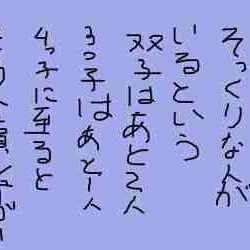 そっくりな人が
いるという
双子はあと2人
3つ子はあと1人
4つ子に至ると